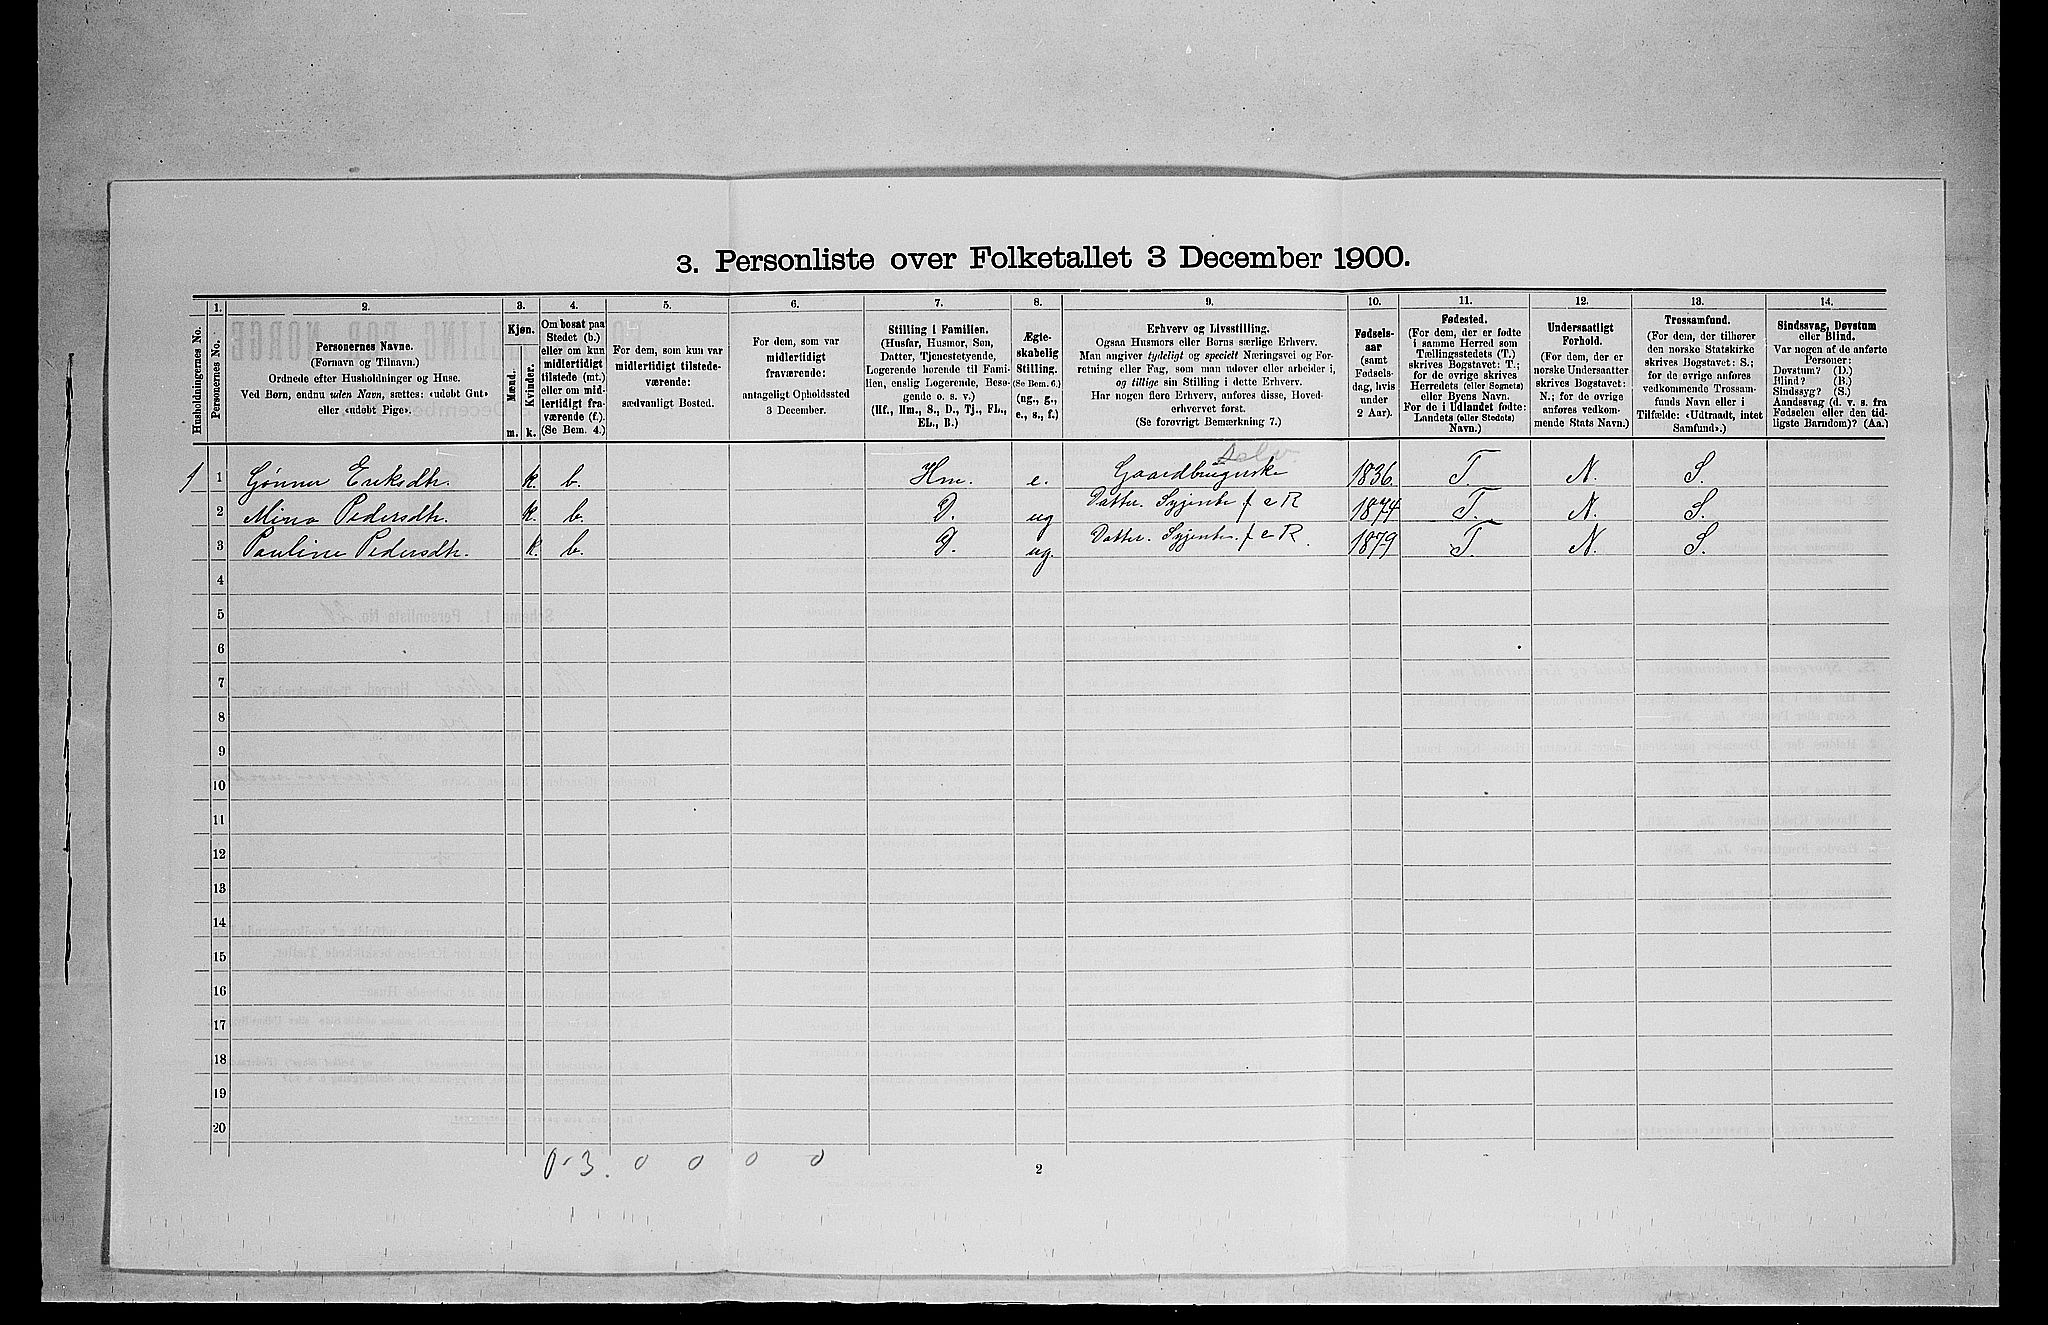 3. Personliste over Folketallet 3 December 1900.
Husholdningernes No.
1.
Personernes No.
2.
Personernes Navne.
(Fornavn og Tilnavn.)
Ordnede efter Husholdninger og Huse.
Ved Børn, endnu uden Navn, sættes: «udøbt Gut»
eller «udøbt Pige».
3.
Kjøn.
Mænd.
Kvinder.
m. k.
4.
Om bosat paa
Stedet (b.)
eller om kun
midlertidigt
tilstede (mt.)
eller om mid-
lertidigt fra-
værende (f.)
(Se Bem. 4.)
5.
For dem, som kun var
midlertidigt tilstede-
værende:
sædvanligt Bosted.
6.
For dem, som var
midlertidigt
fraværende:
antageligt Opholdssted
3 December.
7.
Stilling i Familien.
(Husfar, Husmor, Søn,
Datter, Tjenestetyende,
Logerende hørende til Fami-
lien, enslig Logerende, Besø-
gende o. s. v.)
(Hf., Hm., S., D., Tj., FL.,
EL., B.)
8.
Ægte-
skabelig
Stilling.
(Se Bem. 6.)
(ug., g.,
e., s., f.)
9.
Erhverv og Livsstilling.
Ogsaa Husmors eller Børns særlige Erhverv.
Man angiver tydeligt og specielt Næringsvei og For-
retning eller Fag, som man udøver eller arbeider i,
og tillige sin Stilling i dette Erhverv.
Har nogen flere Erhverv, anføres disse, Hoved-
erhvervet først.
(Se forøvrigt Bemærkning 7.)
10.
Fødsels-
aar
(samt
Fødsels-
dag, hvis
under
2 Aar).
11.
Fødested.
(For dem, der er fødte
i samme Herred som
Tællingsstedets (T.)
skrives Bogstavet: T.;
for de øvrige skrives
Herredets (eller Sognets)
eller Byens Navn.
For de i Udlandet fødte:
Landets (eller Stedets)
Navn.)
12.
Undersaatligt
Forhold.
(For dem, der er
norske Undersaatter
skrives Bogstavet:
N.; for de øvrige
anføres vedkom-
mende Stats Navn.)
13.
Trossamfund.
(For dem, der tilhører
den norske Statskirke
skrives Bogstavet: S.;
for de øvrige anføres
vedkommende Trossam-
funds Navn eller i
Tilfælde: «Udtraadt, intet
Samfund».)
14.
Sindssvag, Døvstum
eller Blind.
Var nogen af de anførte
Personer:
Døvstum? (D.)
Blind? (B.)
Sindssyg? (S.)
Aandssvag (d. v. s. fra
Fødselen eller den tid-
ligste Barndom)? (Aa.)
Selv.
1 1 Gønner Eriksdtr. k b. Hm. e. Gaardbrugerske 1836. T. N. S.
2 Mina Pedersdtr. k. b. D. ug Datter. Syjente f e R 1874 T. N. S.
3 Pauline Pedersdtr. k. b. D. ug. Datter. Syjente. f e R. 1879 T. N. S.
4
5
6
7
8
9
10
11
12
13
14
15
16
17
18
19
20
0-3. 0 0 0 0
2